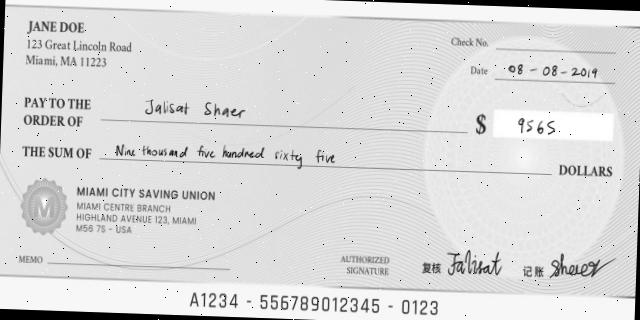 JANE DOE
123 Great Lincoln Road
Miami, MA 11223
Check No.
Date 08-08-2019
PAY TO THE
ORDER OF Jalisat Shaer
$ 9565
THE SUM OF Nine thousand five hundred sixty five DOLLARS
MIAMI CITY SAVING UNION
MIAMI CENTRE BRANCH
HIGHLAND AVENUE 123, MIAMI
M56 7S - USA
M
MEMO
AUTHORIZED
SIGNATURE
复核 Jalisat 记账 Shaer
A1234 - 556789012345 - 0123